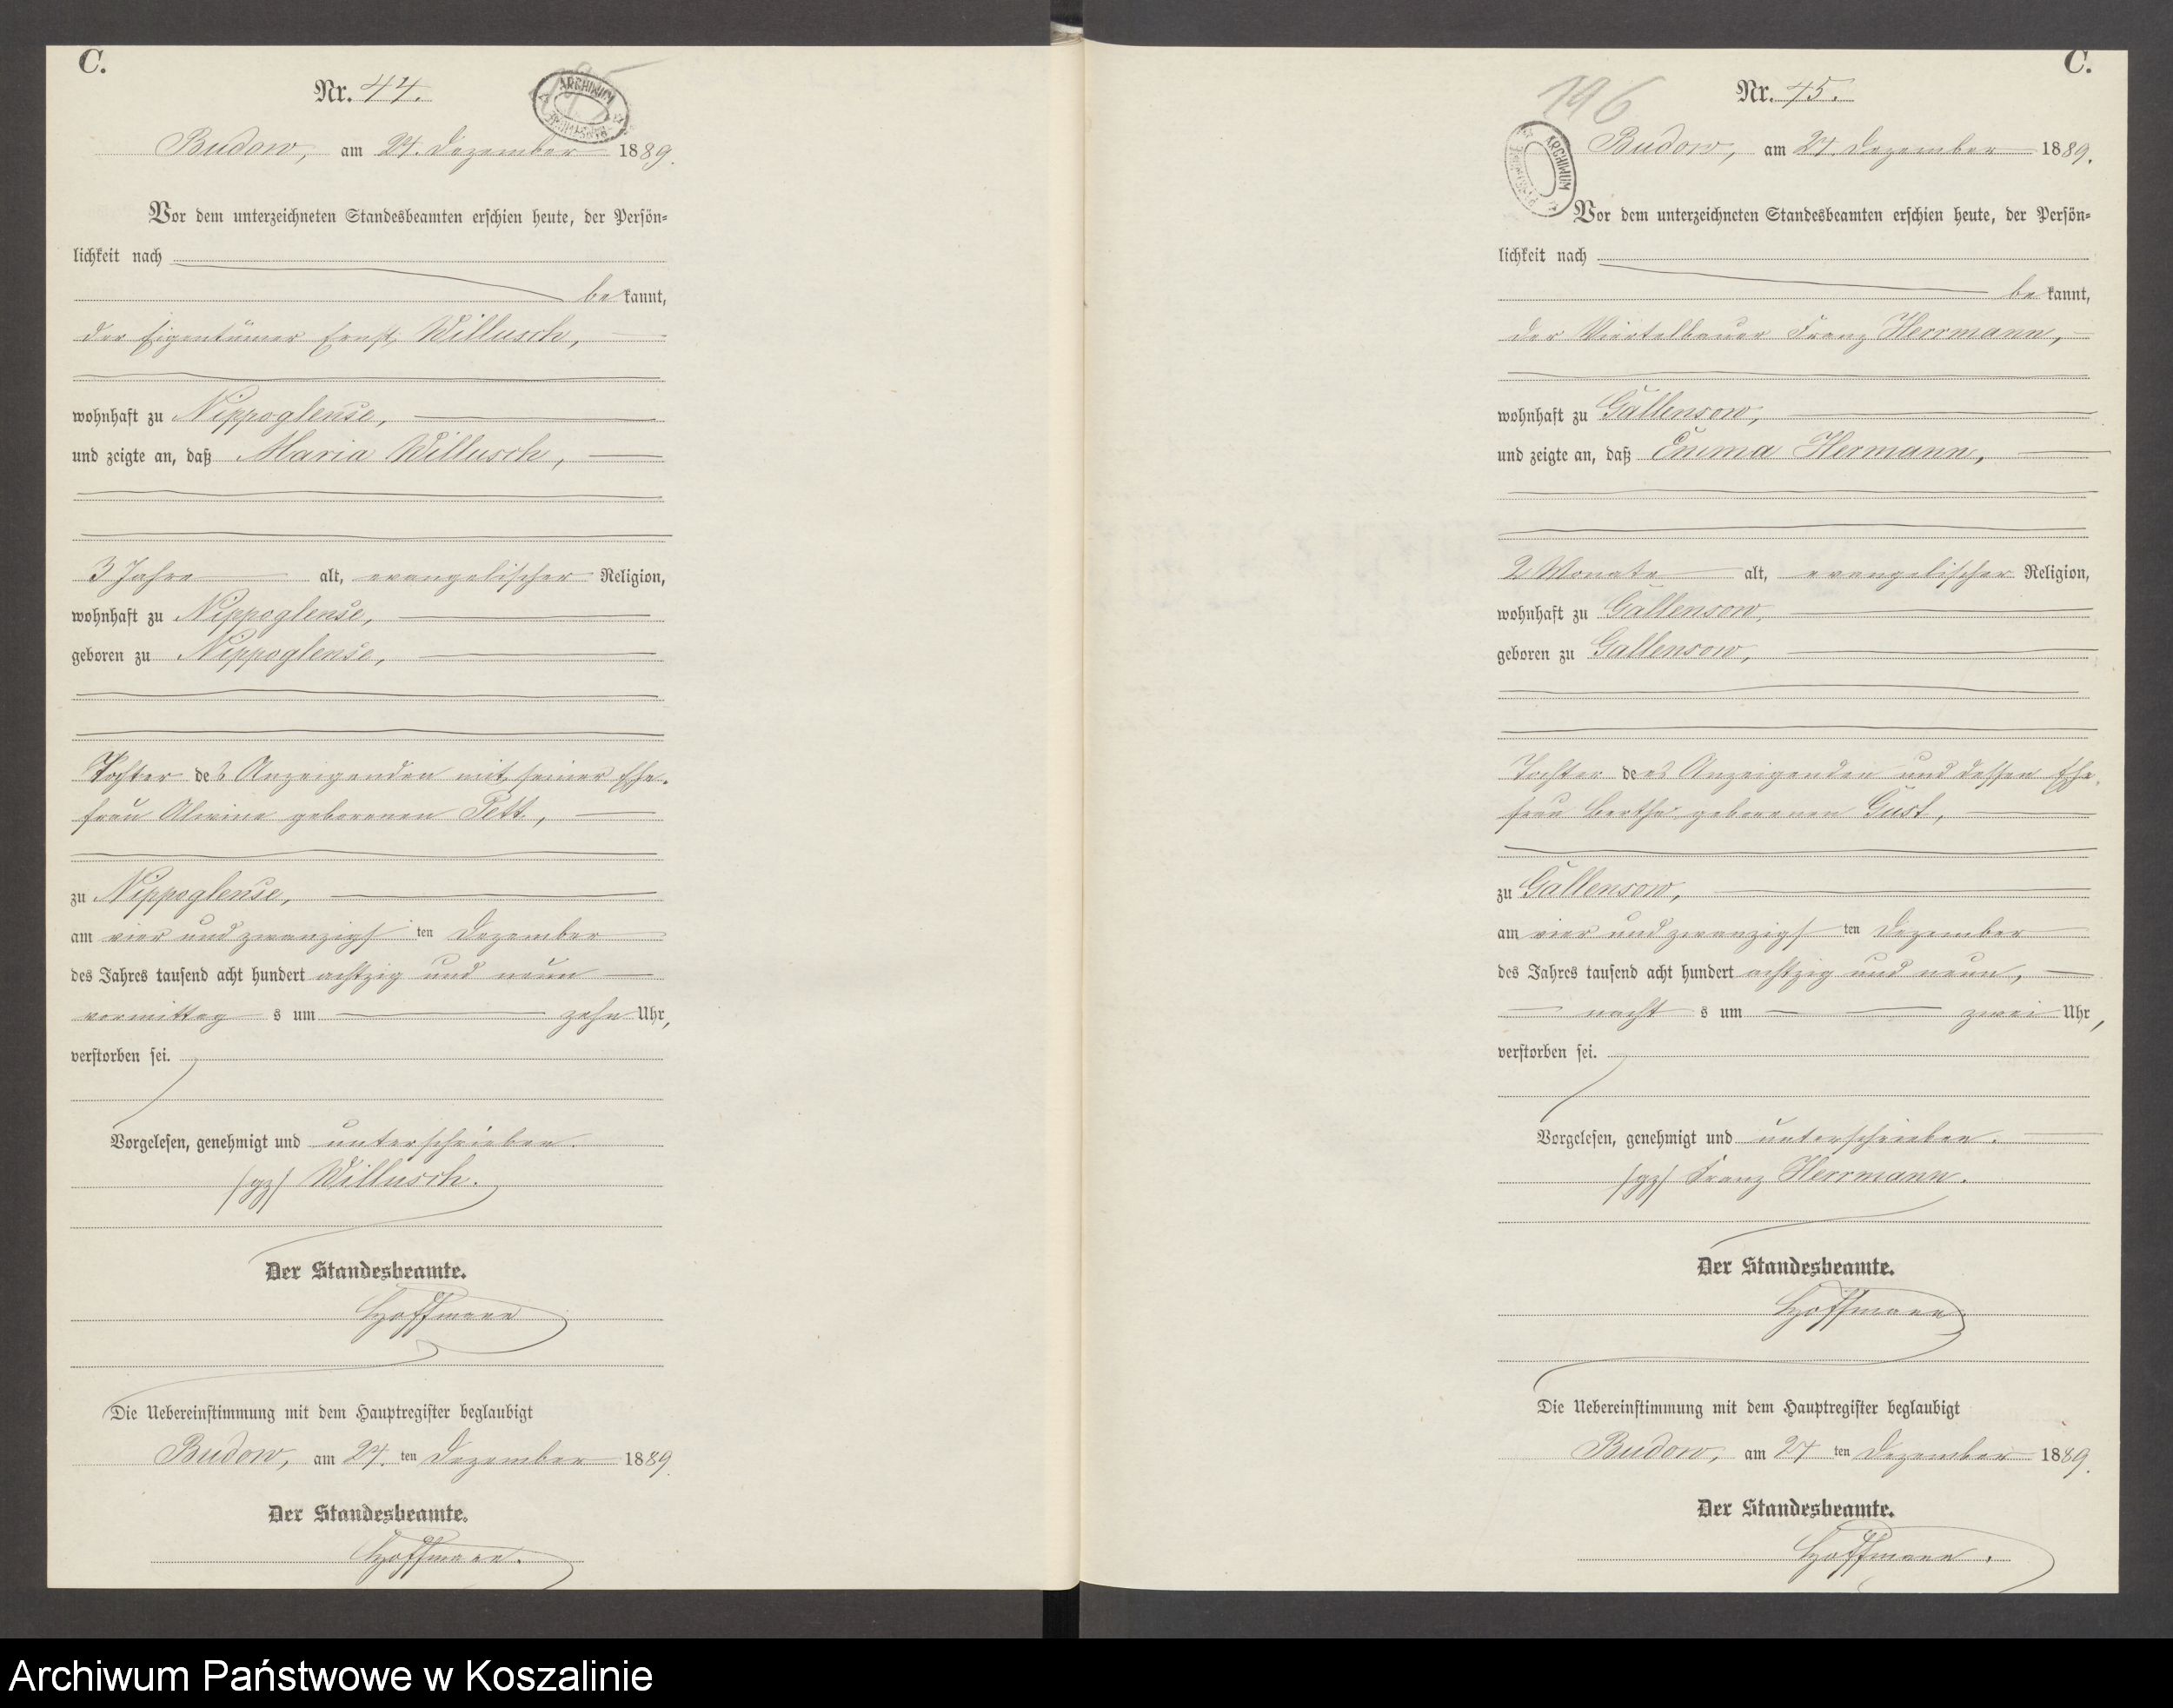 C.
Nr. 44.
ARCHIWUM
Budow, am 24. Dezember 1889.
Vor dem unterzeichneten Standesbeamten erschien heute, der Persön=
lichkeit nach
bekannt,
der Eigentümer Ernst Willusch,
wohnhaft zu Nippoglense,
und zeigte an, daß Maria Willusch,
3 Jahre alt, evangelischer Religion,
wohnhaft zu Nippoglense,
geboren zu Nippoglense,
Tochter des Anzeigenden mit seiner Ehe=
frau Alwine geborenen Pett,
zu Nippoglense,
am vier und zwanzigsten Dezember
des Jahres tausend acht hundert achtzig und neun
vormittags um zehn Uhr,
verstorben sei.
Vorgelesen, genehmigt und unterschrieben.
/gz/ Willusch.
Der Standesbeamte.
Hoffmann
Die Uebereinstimmung mit dem Hauptregister beglaubigt
Budow, am 24. ten Dezember 1889.
Der Standesbeamte.
Hoffmann.
C.
196
Nr. 45.
ARCHIWUM
Budow, am 24. Dezember 1889.
Vor dem unterzeichneten Standesbeamten erschien heute, der Persön=
lichkeit nach
bekannt,
der Viertelbauer Franz Herrmann,
wohnhaft zu Gallensow,
und zeigte an, daß Emma Hermann,
2 Monate alt, evangelischer Religion,
wohnhaft zu Gallensow,
geboren zu Gallensow,
Tochter des Anzeigenden und dessen Ehe=
frau Bertha geborenen Gust,
zu Gallensow,
am vier und zwanzigsten Dezember
des Jahres tausend acht hundert achtzig und neun,
nachts um zwei Uhr,
verstorben sei.
Vorgelesen, genehmigt und unterschrieben.
/gz/ Franz Herrmann.
Der Standesbeamte.
Hoffmann
Die Uebereinstimmung mit dem Hauptregister beglaubigt
Budow, am 24 ten Dezember 1889.
Der Standesbeamte.
Hoffmann.
Archiwum Państwowe w Koszalinie